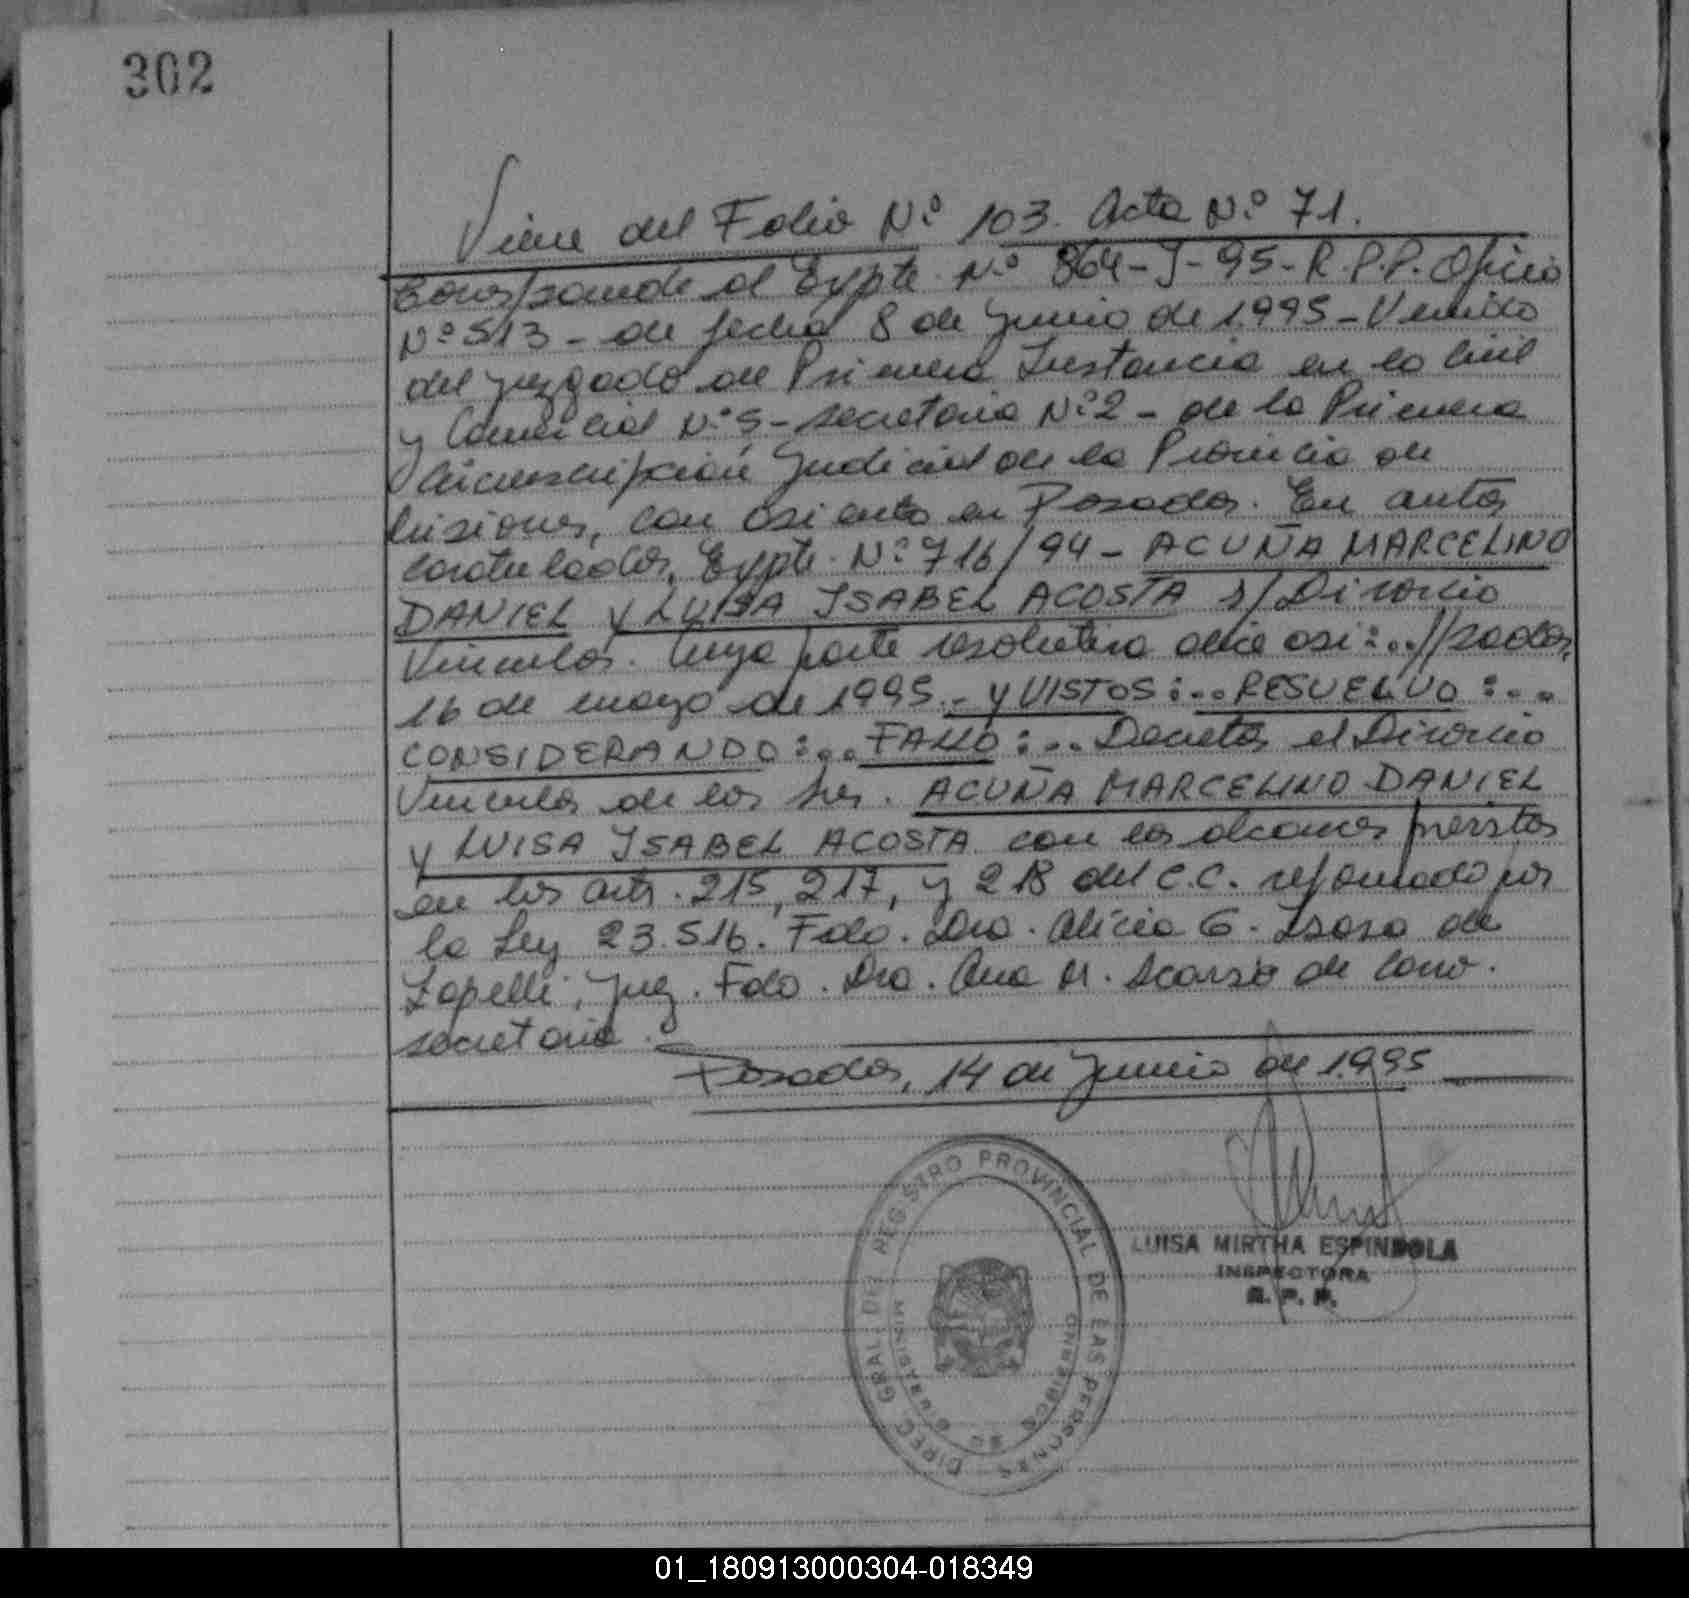 302
Viene del Folio N.º 103. Acta N.º 71.
Corresponde al Expte. N.º 864-J-95-R.P.P. Oficio
Nº 513 - de fecha 8 de Junio de 1.995 - Venido
del Juzgado de Primera Instancia en lo Civil
y Comercial N.º 5 - secretaria N.º 2 - de la Primera
Circunscripción Judicial de la Provincia de
Misiones, con asiento en Posadas. En autos
caratulados, Expte. N.º 716/94 - ACUÑA MARCELINO
DANIEL y LUISA ISABEL ACOSTA s/ Divorcio
Vincular. Cuya parte resolutiva dice así:..//sadas,
16 de mayo de 1995.- y VISTOS:.. RESUELVO:..
CONSIDERANDO:.. FALLO:... Decretar el Divorcio
Vincular de los Sres. ACUÑA MARCELINO DANIEL
y LUISA ISABEL ACOSTA con los alcances previstos
en los arts. 215, 217, y 218 del C.C. reformado por
la Ley 23.516. Fdo. Dra. Alicia G. de
Zapelli, Juez. Fdo. Dra. Ana M. de
secretaria.
Posadas, 14 de Junio de 1.995
DIREC. GRAL. DEL REGISTRO PROVINCIAL DE LAS PERSONAS
MINISTERIO DE GOBIERNO
LUISA MIRTHA ESPINDOLA
INSPECTORA
R. P. P.
01_180913000304-018349